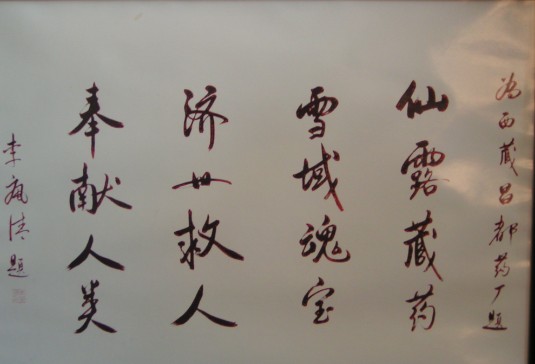 为西藏昌都药厂题
仙露藏药
雪域魂宝
济世救人
奉献人类
李 题